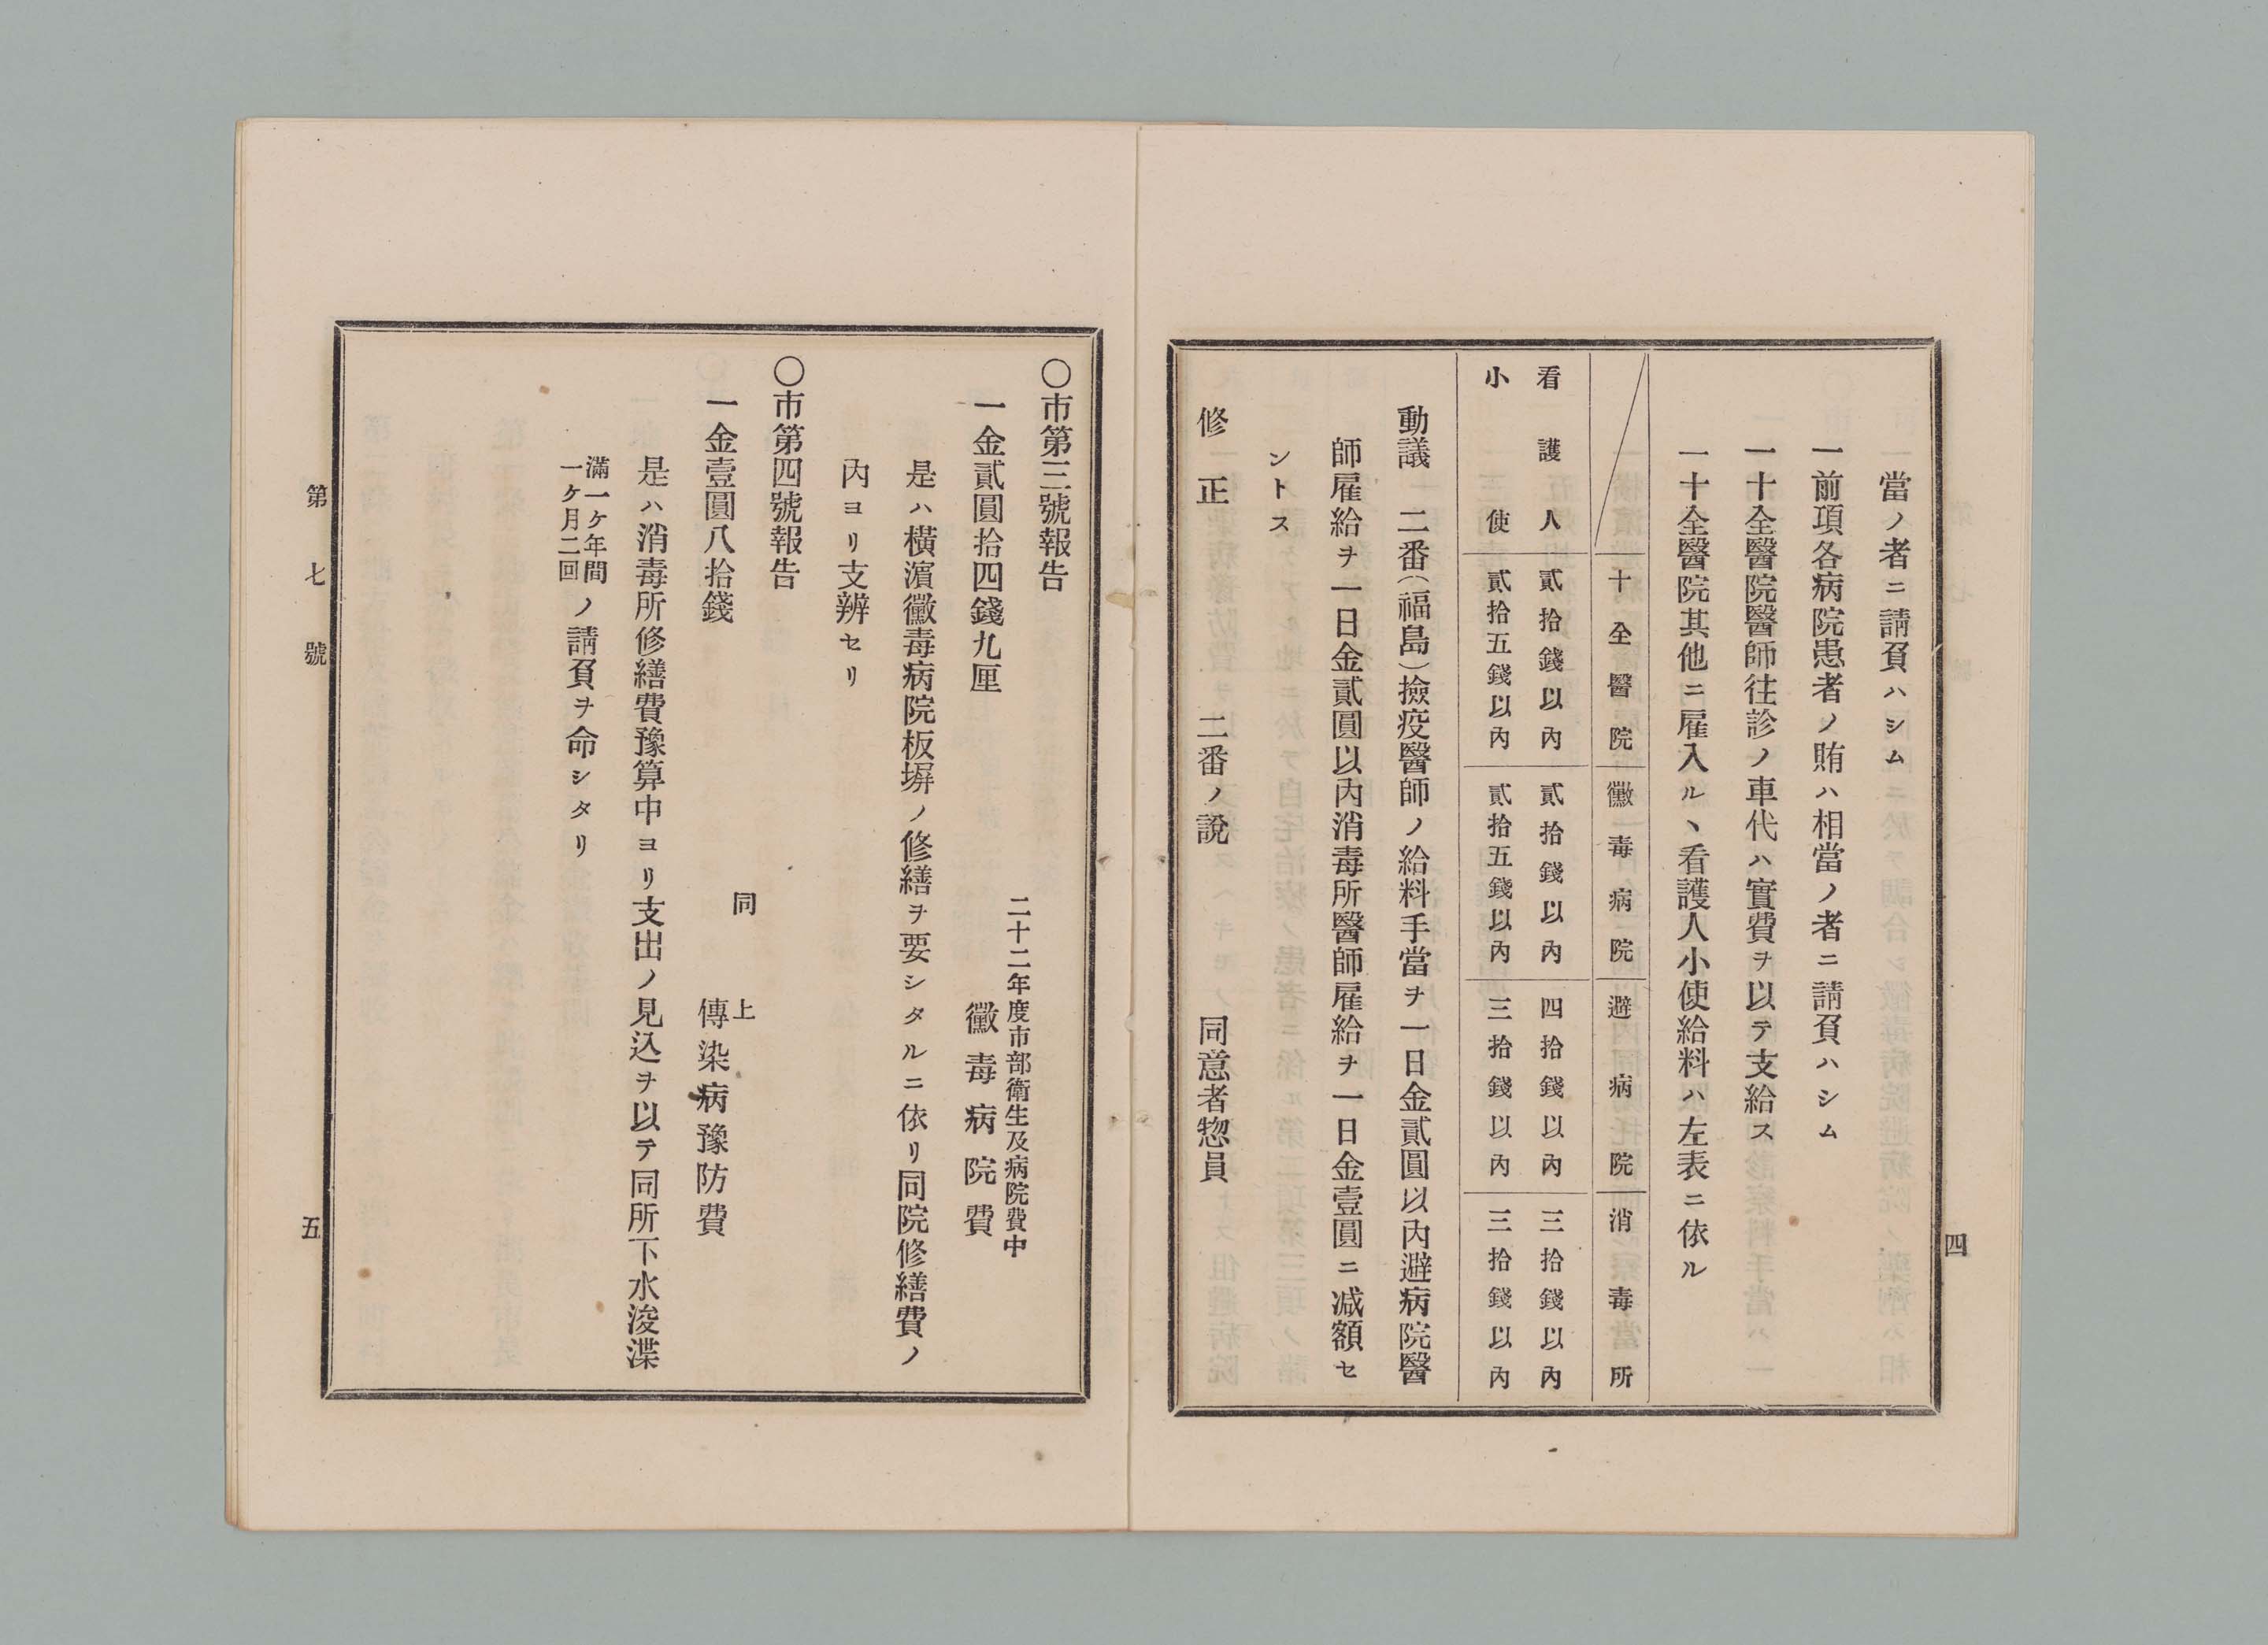 當ノ者ニ請負ハシム
一前項各病院患者ノ賄ハ相當ノ者ニ請負ハシム
一十全醫院醫師往診ノ車代ハ實費ヲ以テ支給ス
一十全醫院其他ニ雇入ル丶看護人小使給料ハ左表ニ依ル
十全醫院 黴毒病院 避病院 消毒所
看護人 貳拾錢以內 貳拾錢以內 四拾錢以內 三拾錢以內
小使 貳拾五錢以內 貳拾五錢以內 三拾錢以內 三拾錢以內
動議 二番(福島)撿疫醫師ノ給料手當ヲ一日金貳圓以內避病院醫
師雇給ヲ一日金貳圓以內消毒所醫師雇給ヲ一日金壹圓ニ减額セ
ントス
修正 二番ノ說 同意者惣員
四
○市第三號報告
二十二年度市部衛生及病院費中
一金貳圓拾四錢九厘 黴毒病院費
是ハ橫濱黴毒病院板塀ノ修繕ヲ要シタルニ依リ同院修繕費ノ
內ヨリ支辨セリ
○市第四號報告
同上
一金壹圓八拾錢 傳染病豫防費
是ハ消毒所修繕費豫算中ヨリ支出ノ見込ヲ以テ同所下水浚渫
滿一ケ年間
一ケ月二回
ノ請負ヲ命シタリ
第七號
五